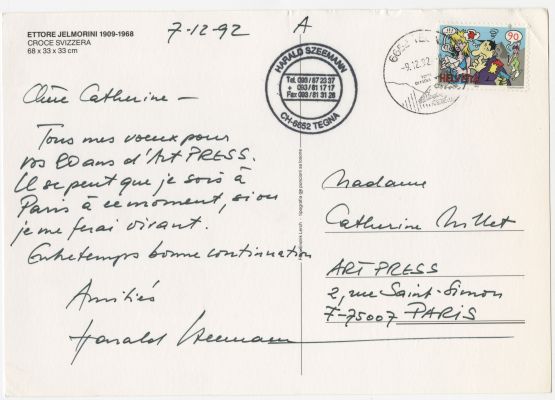 ETTORE JELMORINI 1909-1968
CROCE SVIZZERA
68 x 33 x 33 cm
7-12-92
A
HARALD SZEEMANN
Tel. 093/87 23 37
+ 093/81 17 17
Fax 093/81 31 26
CH-6652 TEGNA
6652 TE
-9.12.92
90
HELVETIA
Chère Catherine –
Tous mes voeux pour
vos 20 ans d'Art PRESS.
Il se peut que je sois à
Paris à ce moment, sinon
je me ferai vivant.
Entretemps bonne continuation
Amitiés
Harald Szeemann
Madame
Catherine Millet
ART PRESS
2, rue Saint-Simon
F-75007 PARIS